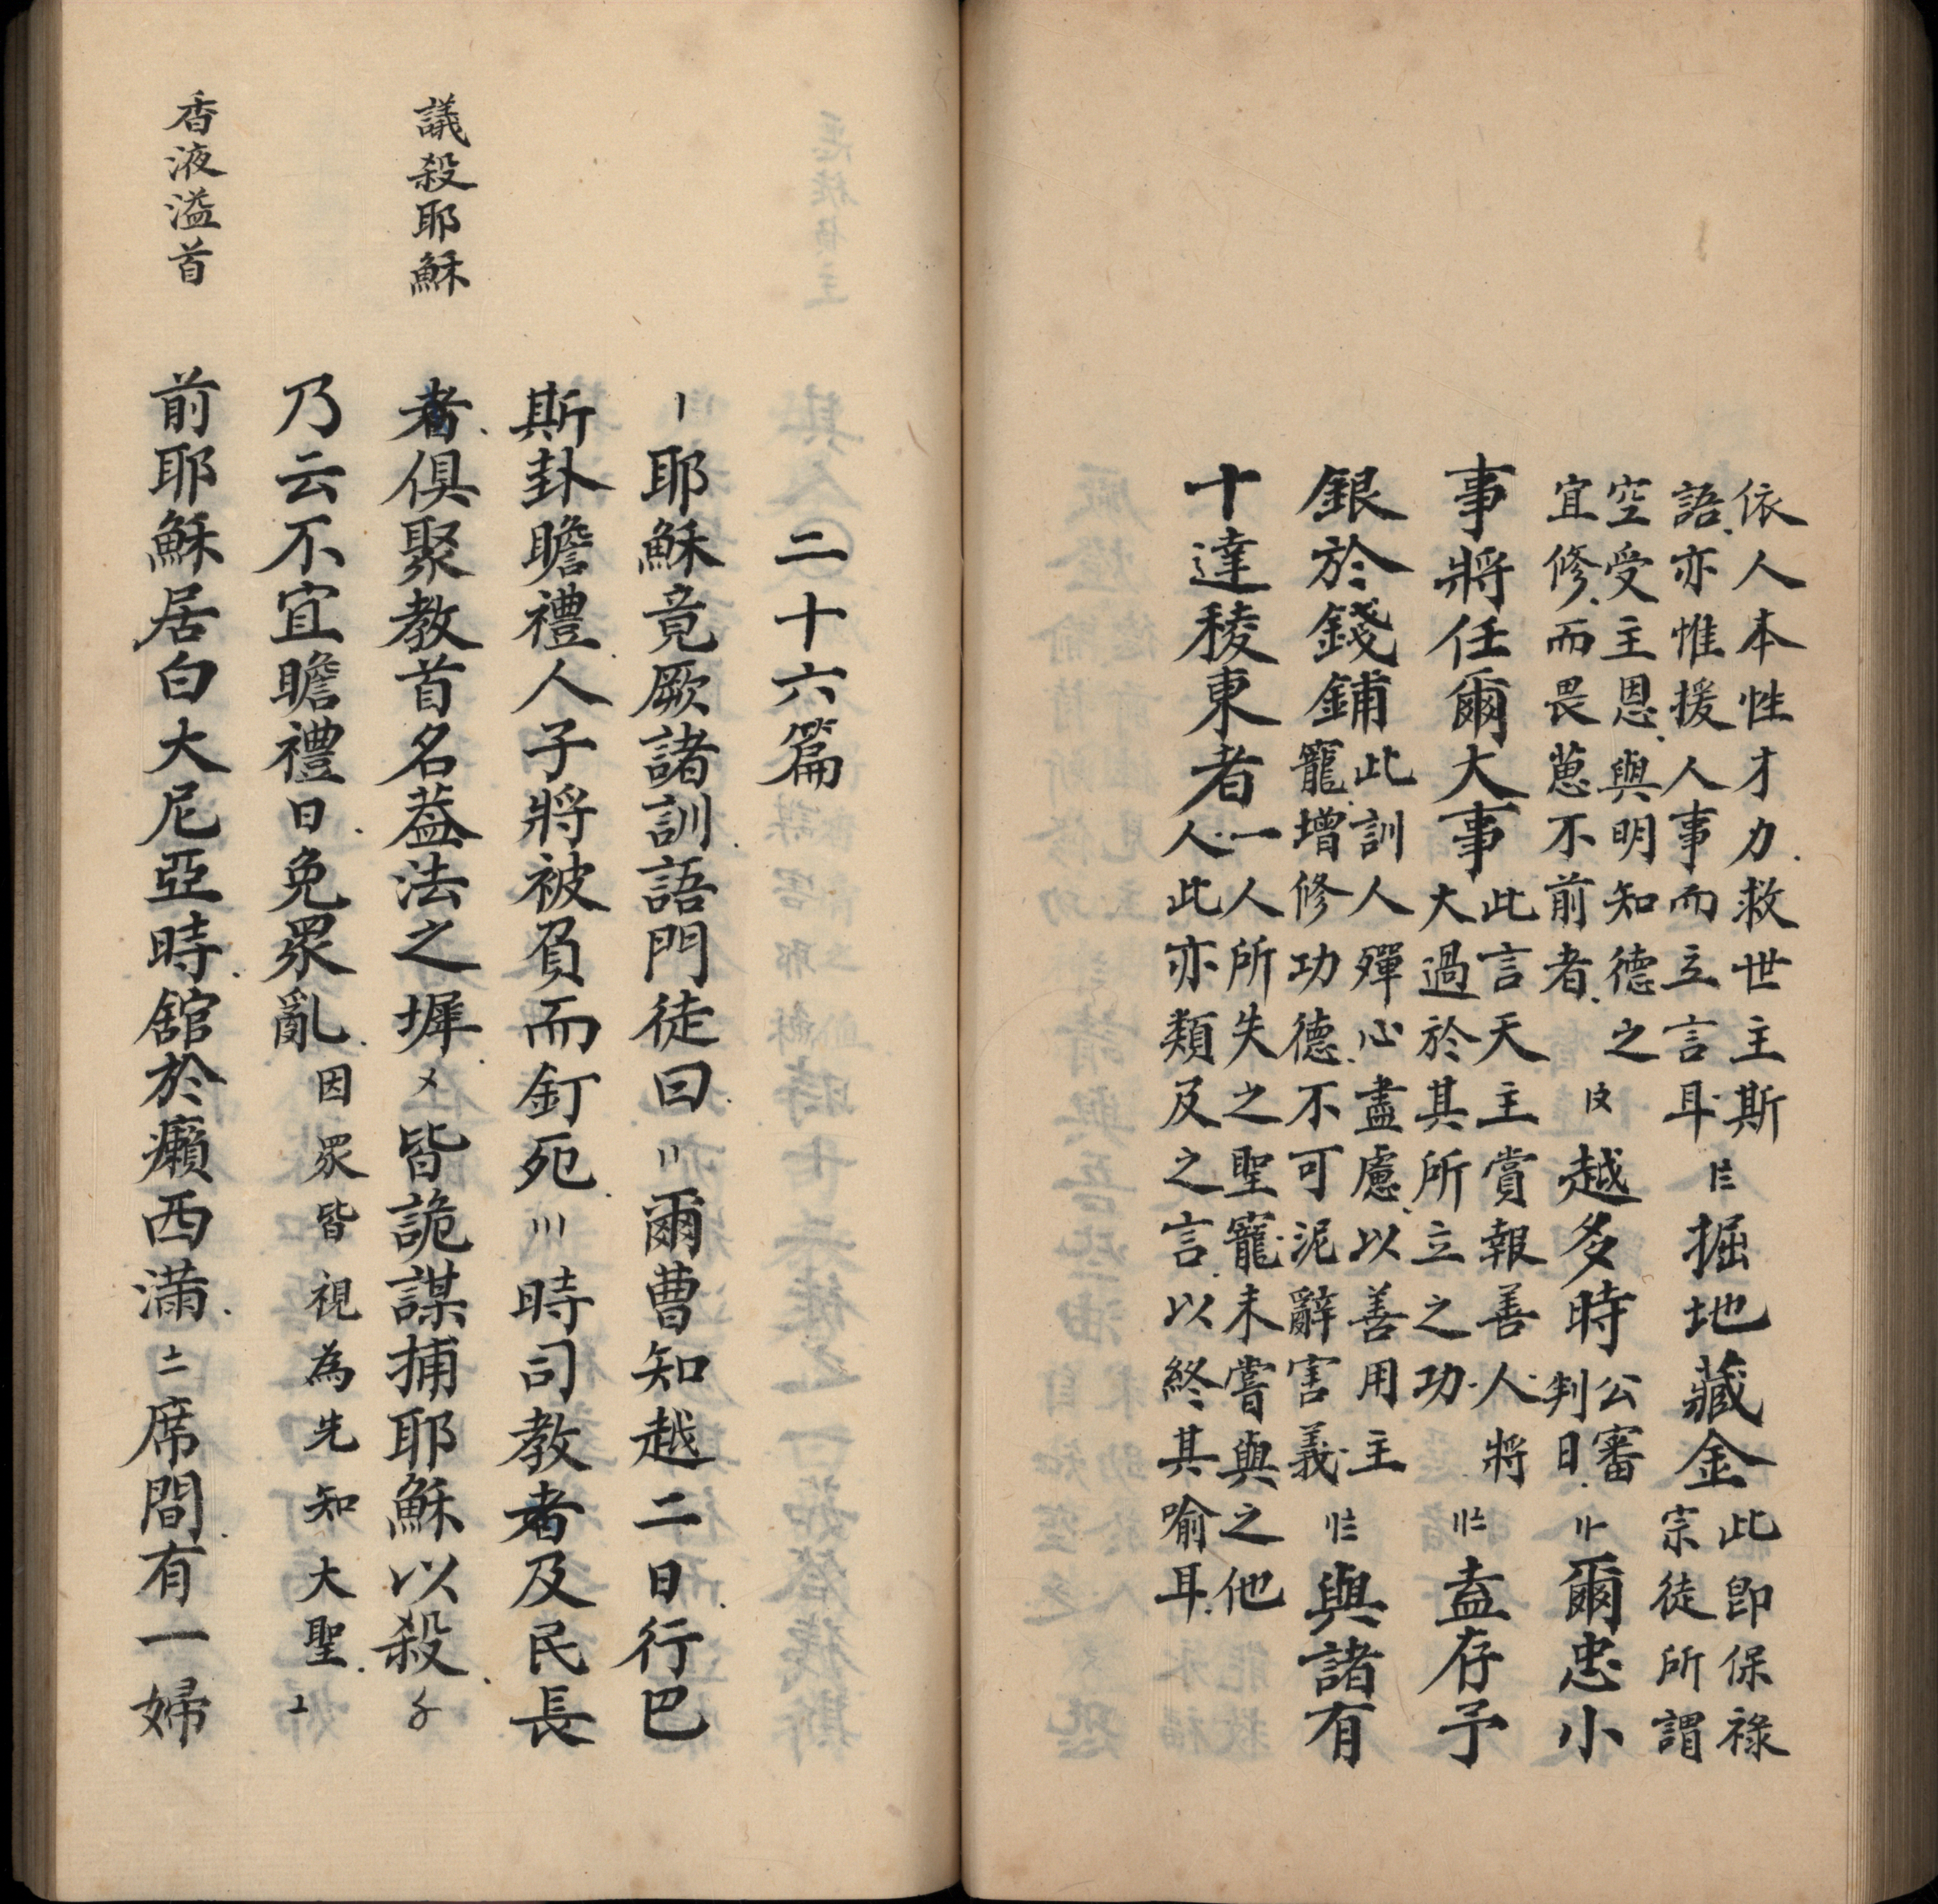 依人本性才力救世主斯
語亦惟援人事而立言耳
掘地藏金
此即保祿
宗徒所謂
空受主恩與明知德之
宜修而畏葸不前者
越多時
公審
判日
爾忠小
事將任爾大事
此言天主賞報善人將
大過於其所立之功
盍存予
銀於錢鋪
此訓人殫心盡慮以善用主
寵增修功德不可泥辭害義
與諸有
十達稜東者
一人所失之聖寵未嘗與之他
人此亦類及之言以終其喻耳
二十六篇
〡耶穌竟厥諸訓語門徒曰〢爾曹知越二日行巴
斯卦瞻禮人子將被負而釘死〣時司教者及民長
議殺耶穌
者俱聚教首名葢法之墀〤皆詭謀捕耶穌以殺〥
乃云不宜瞻禮日免眾亂因眾皆視為先知大聖〦
香液溢首
前耶穌居白大尼亞時舘於癩西滿〧席間有一婦